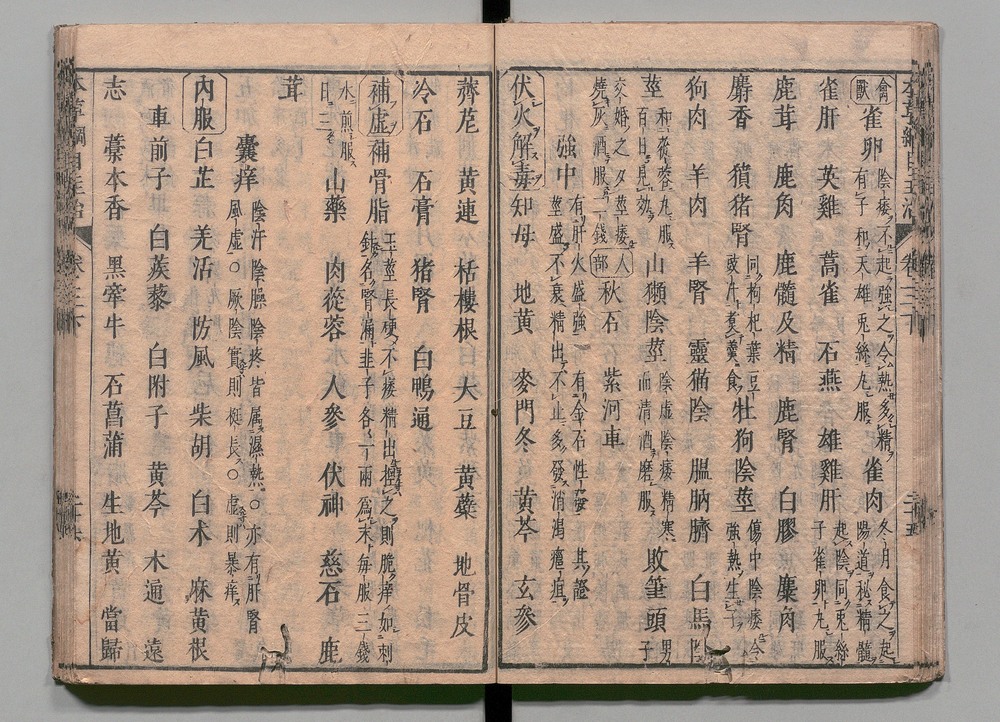 禽獸 雀卵 陰痿不起強之令熱多精有子和天雄兎絲丸服 雀肉 冬月食之起陽道秘精髓
雀肝 英雞 蒿雀 石燕 雄雞肝 起陰同兎絲子雀卵丸服
鹿茸 鹿角 鹿髓及精 鹿腎 白膠 麋角
麝香 豶猪腎 同枸杞葉豆豉汁煑羹食 牡狗陰莖 傷中陰痿令強熱生子
狗肉 羊肉 羊腎 靈猫陰 膃肭臍 白馬陰
莖 和蓯蓉丸服百日見効 山獺陰莖 陰虛陰痿精寒而清酒磨服 敗筆頭 男子
交婚之夕莖痿燒灰酒服二錢 人部 秋石 紫河車
強中 有肝火盛強 有金石性 其證莖盛不衰精出不止多發消渴癰疽
伏火解毒 知母 地黃 麥門冬 黃芩 玄參
薺苨 黃連 栝樓根 大豆 黃蘗 地骨皮
冷石 石膏 猪腎 白鴨通
補虛 補骨脂 玉莖長硬不痿精出捏之則脆痒如刺針名腎漏韭子各一兩爲末每服三錢
水煎服日三 山藥 肉從容 人參 伏神 慈石 鹿
茸
囊痒 陰汗陰臊陰疼皆属濕熱○亦有肝腎風虛○厥陰實則挺長○虛則暴痒
內服 白芷 羌活 防風 柴胡 白术 麻黃根
車前子 白蒺藜 白附子 黃芩 木通 遠
志 藁本香 黑牽牛 石菖蒲 生地黃 當歸